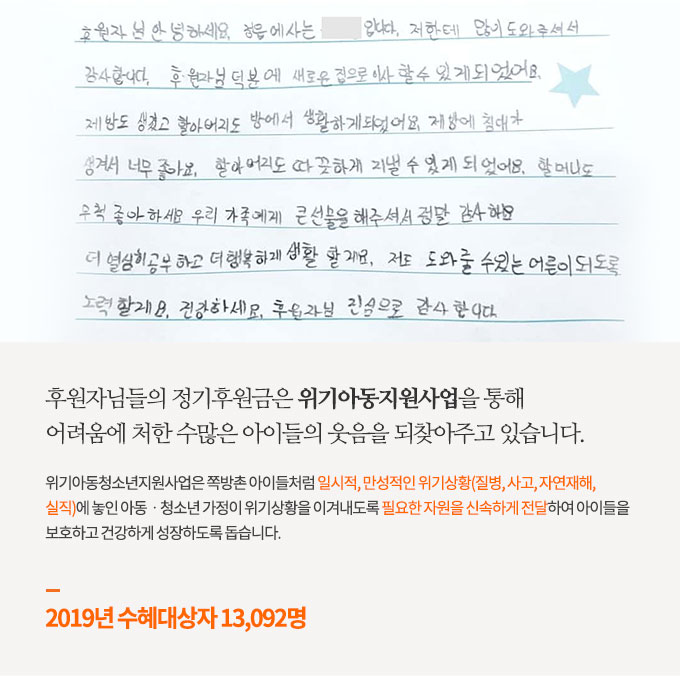 후원자님 안녕하세요, 정읍에사는 입니다. 저한테 많이 도와주셔서
감사합니다. 후원자님 덕분에 새로운 집으로 이사 할 수 있게 되었어요.
제방도 생겼고 할아버지도 방에서 생활하게되었어요. 제방에 침대가
생겨서 너무 좋아요. 할아버지도 따뜻하게 지낼 수 있게 되었어요. 할머니도
무척 좋아하세요 우리 가족에게 큰선물을해주셔서 정말 감사해요
더 열심히공부하고 더행복하게 생활 할게요. 저도 도와줄 수있는 어른이되도록
노력할게요. 건강하세요. 후원자님 진심으로 감사합니다.
후원자님들의 정기후원금은 위기아동지원사업을 통해
어려움에 처한 수많은 아이들의 웃음을 되찾아주고 있습니다.
위기아동청소년지원사업은 쪽방촌 아이들처럼 일시적, 만성적인 위기상황(질병, 사고, 자연재해,
실직)에 놓인 아동 · 청소년 가정이 위기상황을 이겨내도록 필요한 자원을 신속하게 전달하여 아이들을
보호하고 건강하게 성장하도록 돕습니다.
2019년 수혜대상자 13,092명